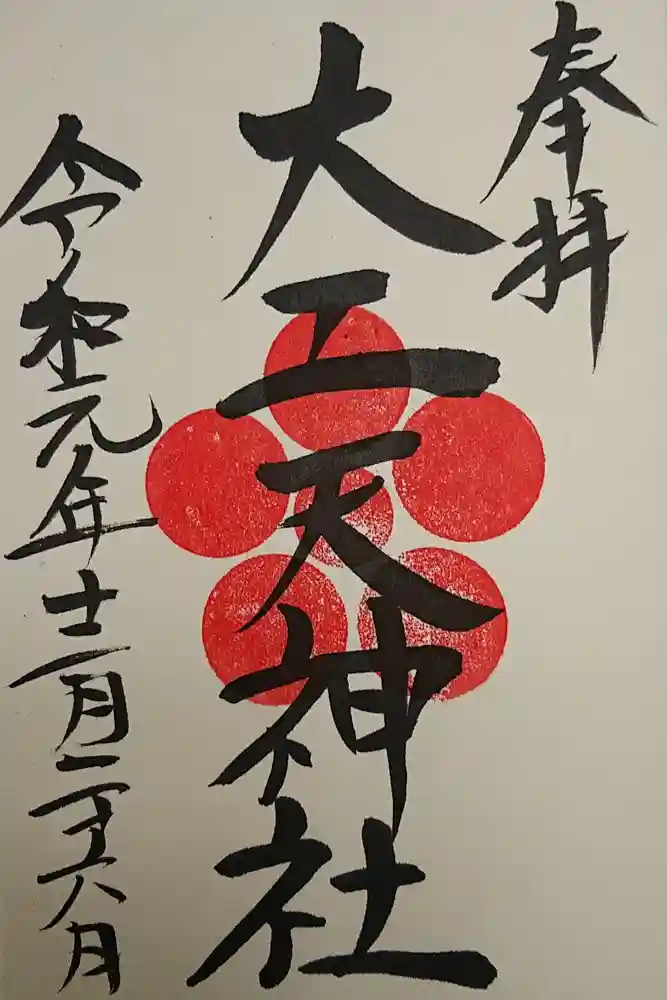 奉拝
大工天神社
令和元年十二月二十六日